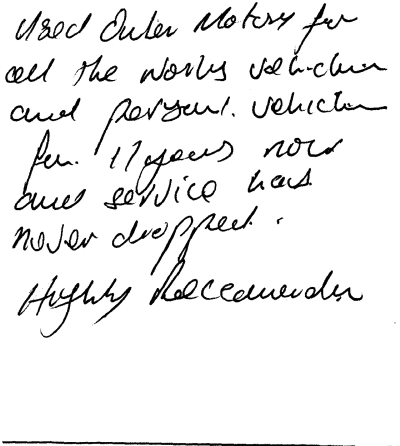 Used Outer Motors for
all the works vehicles
and personal vehicles
for 17 years now
and service has
never dropped.
Highly Reccomended